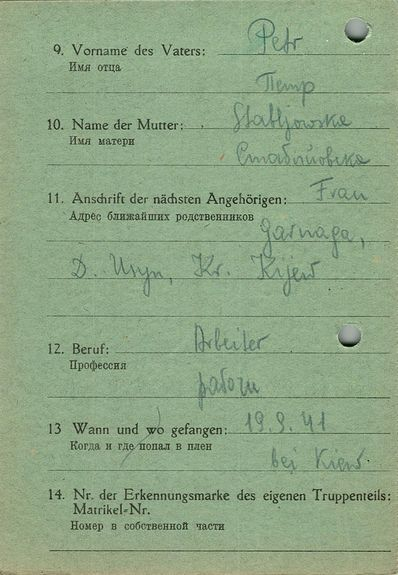 9. Vorname des Vaters: Petr
Имя отца
Петр
10. Name der Mutter: Stabljowska
Имя матери
Стаблйовска
11. Anschrift der nächsten Angehörigen: Frau
Адрес ближайших родственников
Garnaga,
D. Usyn, Kr. Kijew
12. Beruf: Arbeiter
Профессия
работи
13 Wann und wo gefangen: 19.9.41
Когда и где попал в плен
bei Kiew
14. Nr. der Erkennungsmarke des eigenen Truppenteils:
Matrikel-Nr.
Номер в собственной части